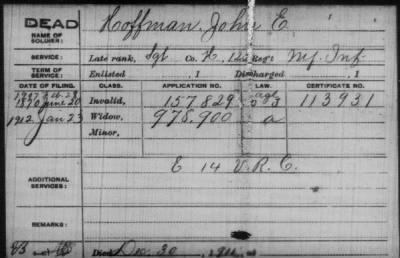 DEAD
NAME OF SOLDIER: Hoffman, John E.
SERVICE: Late rank, Sgt Co. H, 12 Reg't NJ. Inf
TERM OF SERVICE: Enlisted , 1 Discharged , 1
DATE OF FILING. CLASS. APPLICATION NO. LAW. CERTIFICATE NO.
1907
1870 June 20 Invalid, 157.829 113931
1912 Jan 23 Widow, 978.900 a
Minor,
ADDITIONAL SERVICES: E 14 V. R. C.
REMARKS:
Died Dec. 30, 1911